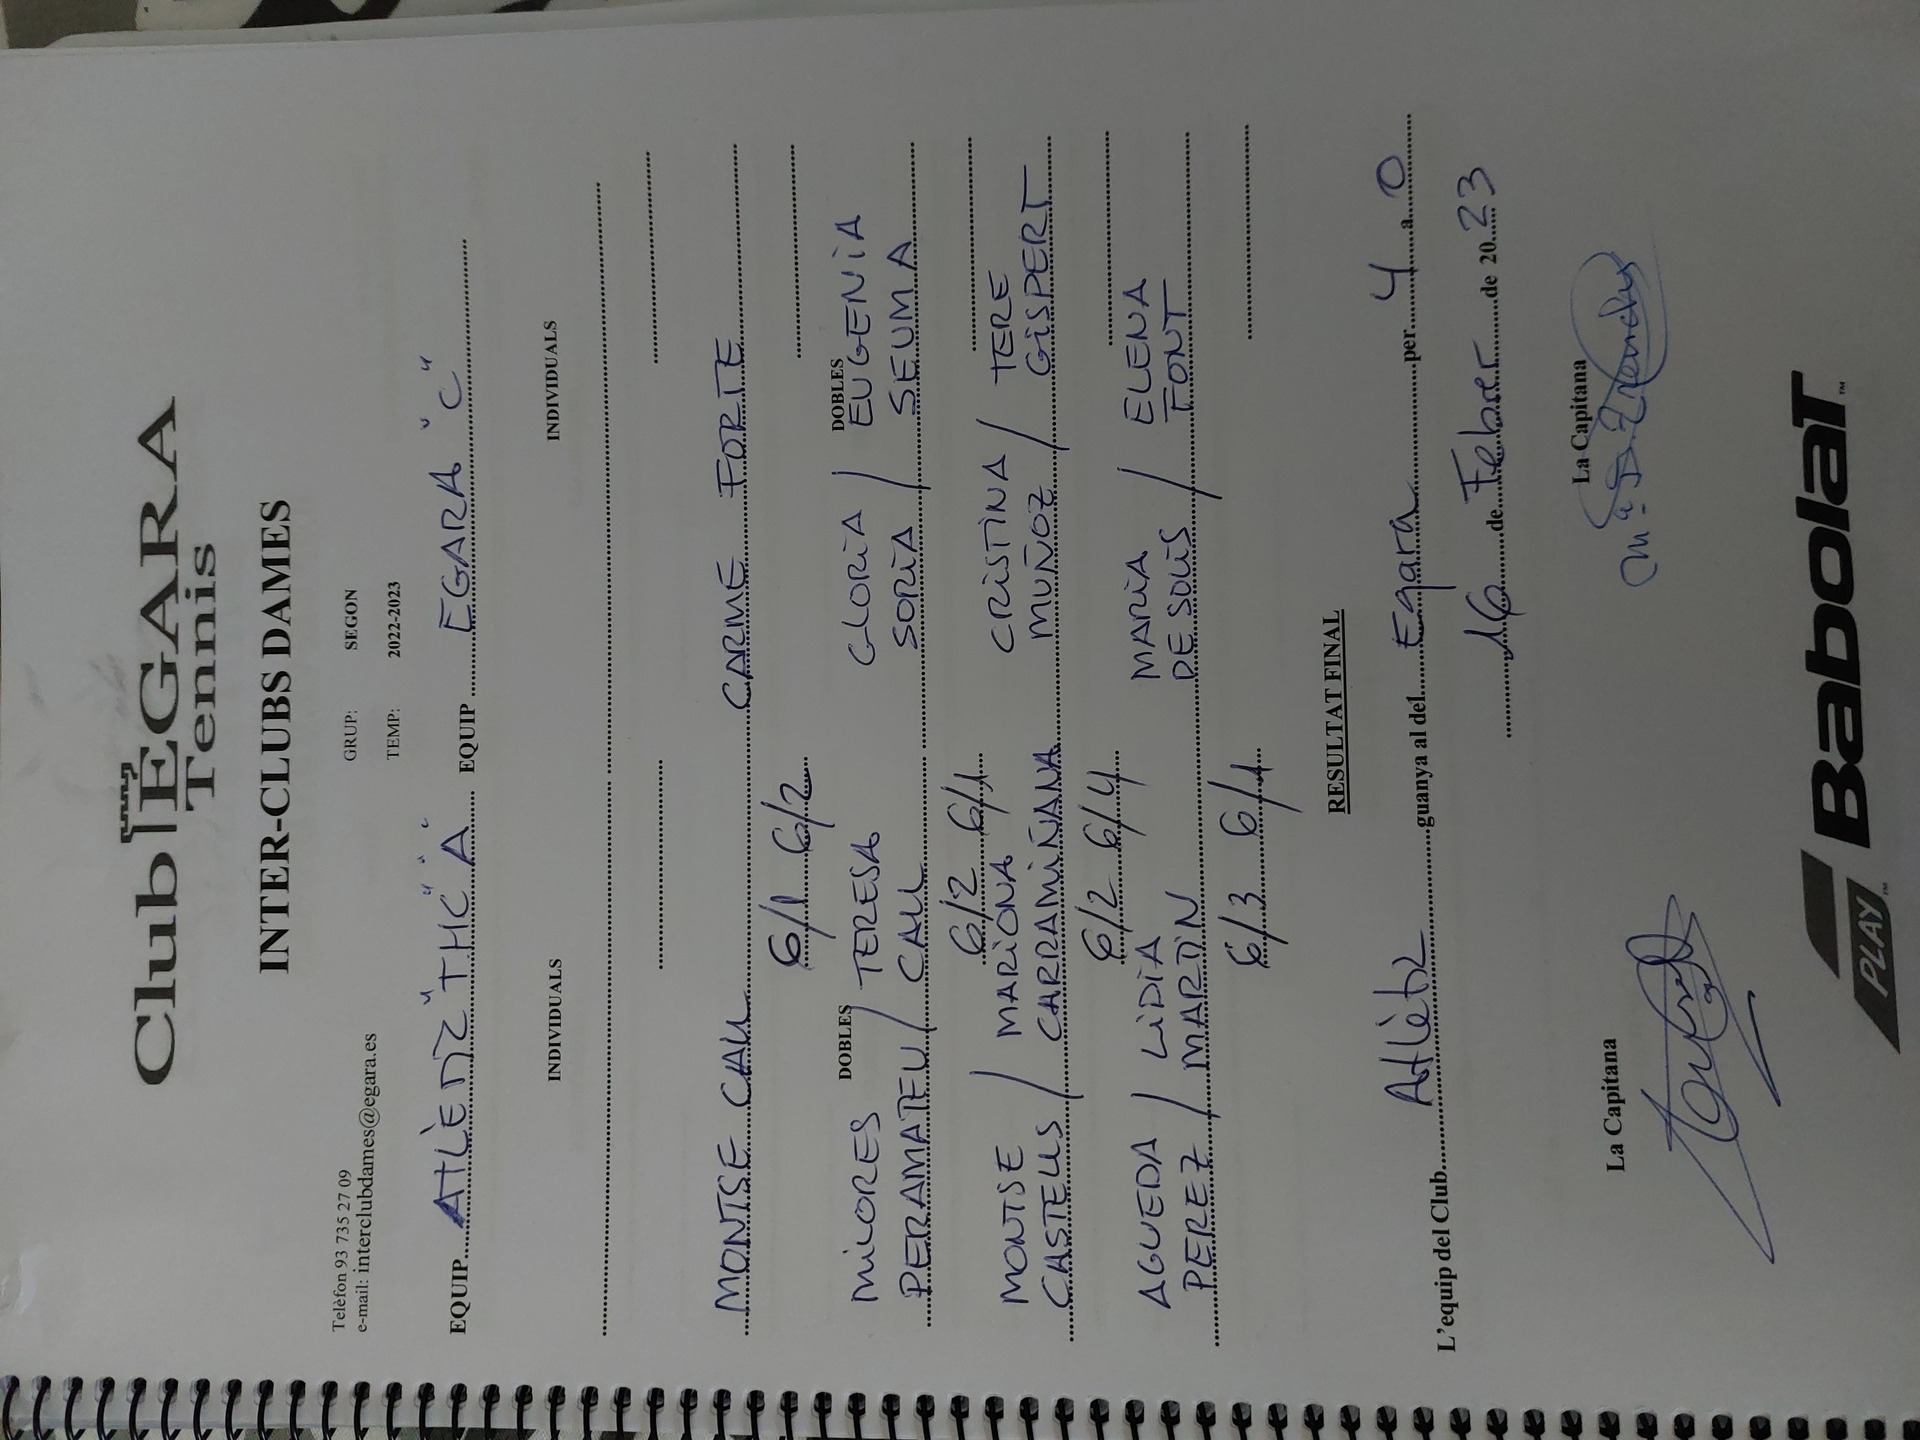 Club EGARA
Tennis
INTER-CLUBS DAMES
Telèfon 93 735 27 09 GRUP: SEGON
e-mail: interclubdames@egara.es TEMP: 2022-2023
EQUIP ATLÈTIC "THC" "A" EQUIP EGARA "C"
INDIVIDUALS INDIVIDUALS
MONTSE CALL CARME FORTE
6/1 6/2
DOBLES DOBLES
MILORES / TERESA GLORIA / EUGENIA
PERAMATEU / CALL SORIA / SEUMA
6/2 6/1
MONTSE / MARIONA CRISTINA / TERE
CASTELLS / CARRAMIÑANA MUÑOZ / GISPERT
6/2 6/4
AGUEDA / LIDIA MARIA / ELENA
PEREZ / MARTIN DE SOLIS / FONT
6/3 6/1
RESULTAT FINAL
L'equip del Club Atlètic guanya al del Egara per 4 a 0
16 de Febrer de 2023
La Capitana La Capitana
PLAY Babolat